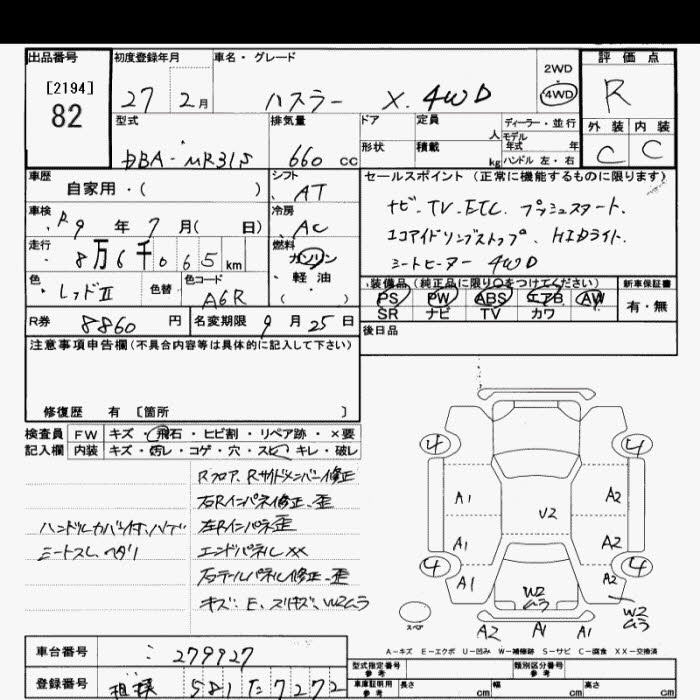 出品番号 初度登録年月 車名・グレード 評価点
[2194]
82
27 2月 ハスラー X. 4WD 2WD
4WD
R
型式 排気量 ドア 定員 人 ディーラー・並行
モデル
年式 年
外装 内装
DBA-MR31S 660 cc 形状 積載 kg ハンドル 左・右
C C
車歴 シフト セールスポイント (正常に機能するものに限ります)
自家用・( ) AT
ナビ・TV.ETC. プッシュスタート.
車検 冷房
R9年 7月( 日) AC
エコアイドリングストップ. HIDライト
走行 燃料
8万6千065km ガソリン
シートヒーター 4WD
色 色替 色コード ・軽油
レッドII A6R ( ・ )
装備品 (純正品に限り○をつけてください) 新車保証書
PS PW ABS エアB AW 有・無
SR ナビ TV カワ
R券 8860円 名変期限 9月25日
後日品
注意事項申告欄(不具合内容等は具体的に記入して下さい)
修復歴 有 [箇所 ]
検査員 FW キズ・飛石・ヒビ割・リペア跡・×要
記入欄 内装 キズ・汚レ・コゲ・穴・スレ・キレ・破レ
Rフロア、Rサイドメンバー修正
右Rインパネ修正、歪
ハンドルカバー付、ハゲ 左Rインパネ歪
シートスレ、ヘタリ エンドパネルXX
右テールパネル修正、歪
キズ、E、スリキズ、W2ムラ
4 4
A1 A2
V2
A1 A2
4 4
A1 A2
W2
ムラ
W2
ムラ
スペア
A2 A1 A1
A-キズ E-エクボ U-凹み W-補修跡 S-サビ C-腐食 XX-交換済
車台番号 279927
型式指定番号
参考
類別区分番号
参考
登録番号 581 7272
車庫証明用
参考
長さ cm 幅 cm 高さ cm